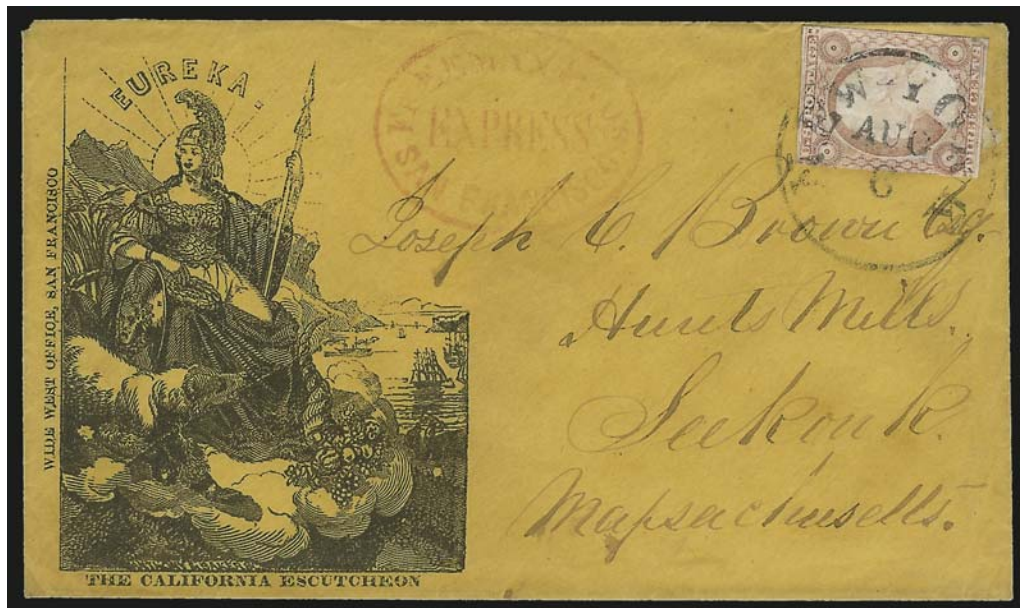 EUREKA.
WIDE WEST OFFICE, SAN FRANCISCO
THE CALIFORNIA ESCUTCHEON
EXPRESS
SAN FRANCISCO
U.S. POSTAGE
THREE CENTS
NEW YORK
AUG
6
Joseph C. Brown Esq.
Hunts Mills.
Seekonk.
Massachusetts.